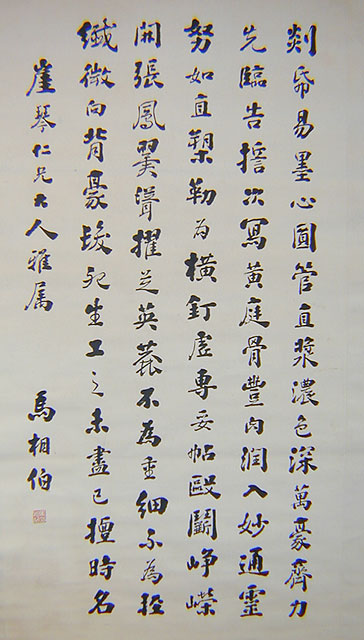 剡帋易墨心圓管直漿濃色深萬豪齊力
先臨告誓次寫黃庭骨豐肉潤入妙通靈
努如直槊勒為橫釘虛專妥帖毆鬭崢嶸
開張鳳翼聳擢芝英麤不為重細不為輕
纖微向背豪髮死生工之未盡已擅時名
崖琴仁兄大人雅属 馬相伯